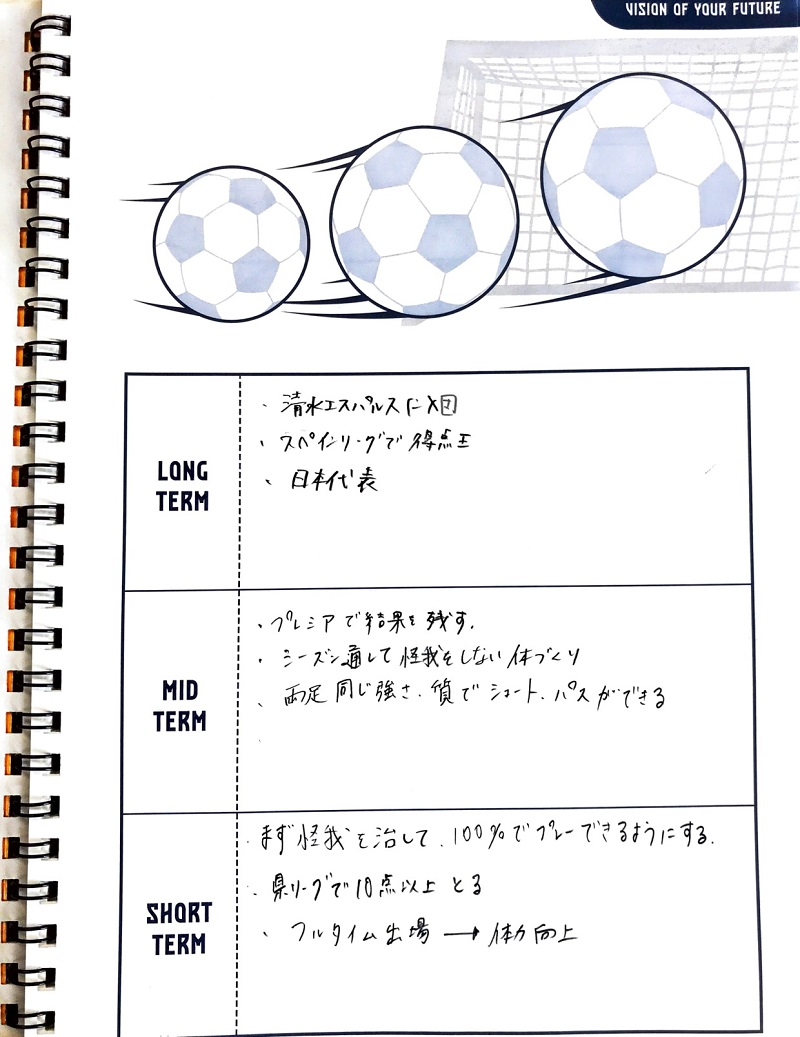 VISION OF YOUR FUTURE
LONG
TERM
・清水エスパルスに入団
・スペインリーグで得点王
・日本代表
MID
TERM
・プレミアで結果を残す.
・シーズン通して怪我をしない体づくり
・両足同じ強さ、質でシュート、パスができる
SHORT
TERM
・まず怪我を治して、100%でプレーできるようにする.
・県リーグで10点以上とる
・フルタイム出場 → 体力向上